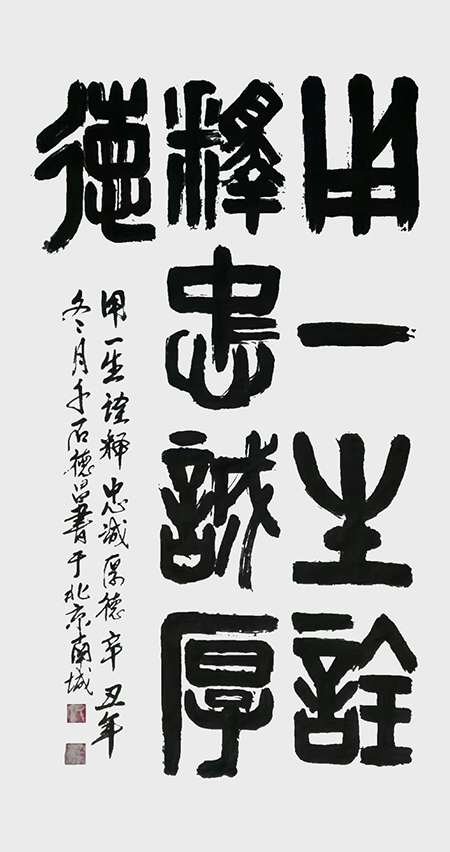 用一生詮
釋忠誠厚
德
用一生詮釋忠誠厚德辛丑年
冬月千石德昌書于北京南城